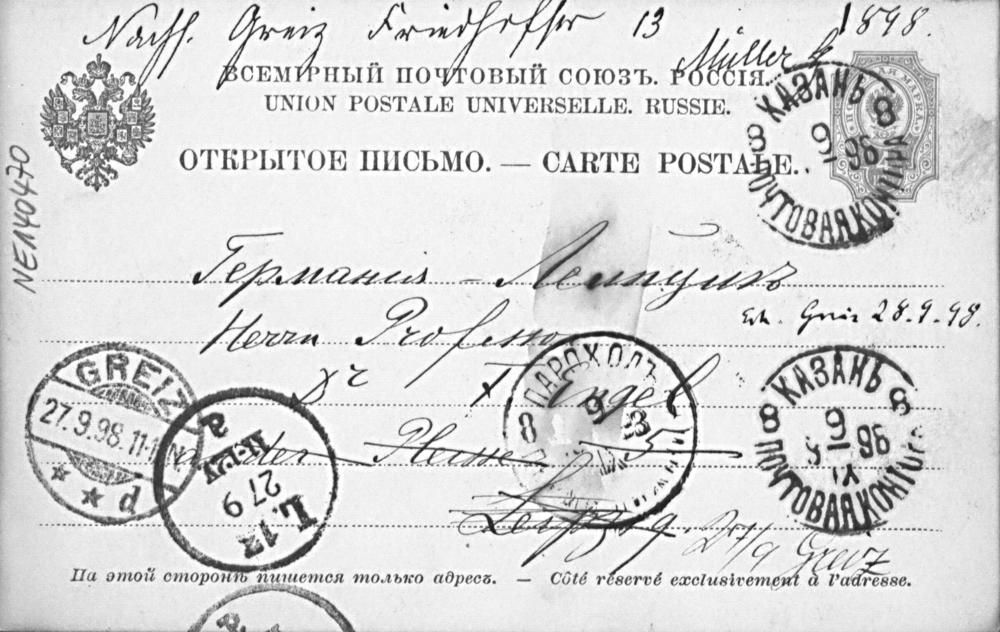 Nachf. Greiz Friedhoffstr 13 1898.
Müller
ВСЕМІРНЫЙ ПОЧТОВЫЙ СОЮЗЪ. РОССІЯ.
UNION POSTALE UNIVERSELLE. RUSSIE.
ОТКРЫТОЕ ПИСЬМО. — CARTE POSTALE.
КАЗАНЬ 8
8 96
ПОЧТОВАЯ
NE140470
Германія - Лейпцигъ
Herrn Professor
Greiz 28.9.98.
Dr Engel
GREIZ
27.9.98. 11-1
d
ПАРОХОДЪ
8 9
КАЗАНЬ
8 9 8
IX 96
ПОЧТОВАЯ
L. 13
27 9
Leipzig. 27/9 Greiz
На этой сторонѣ пишется только адресъ. — Côté réservé exclusivement à l'adresse.